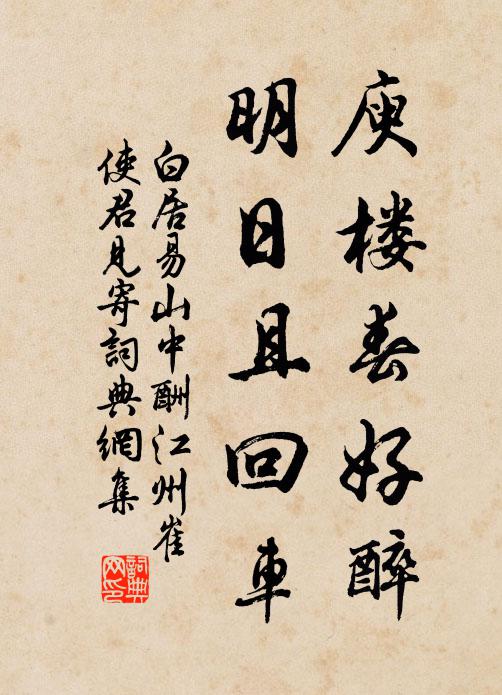 庾楼春好醉
明日且回車
白居易山中酬江州崔
使君見寄詞典網集
詞典
网印